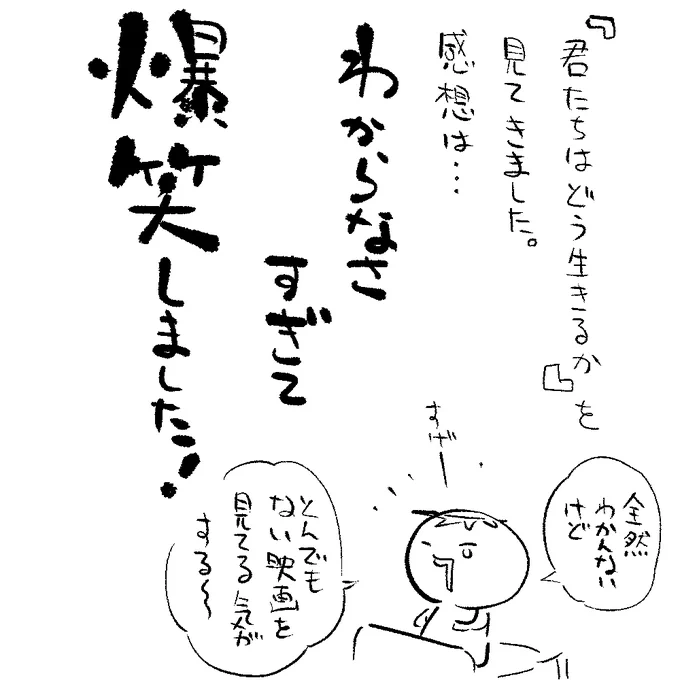 『君たちはどう生きるか』を
見てきました。
感想は…
わからなさ
すぎて
爆笑しました!
すげー
全然
わかんない
けど
とんでも
ない映画を
見てる気が
する〜